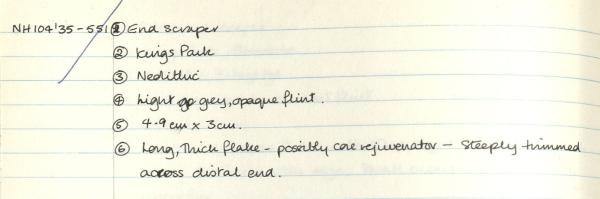 NH104'35-551 ① End Scraper
② Kings Park
③ Neolithic
④ Light grey, opaque flint.
⑤ 4.9cm x 3cm.
⑥ Long, Thick flake - possibly core rejuvenator - Steeply trimmed
across distal end.